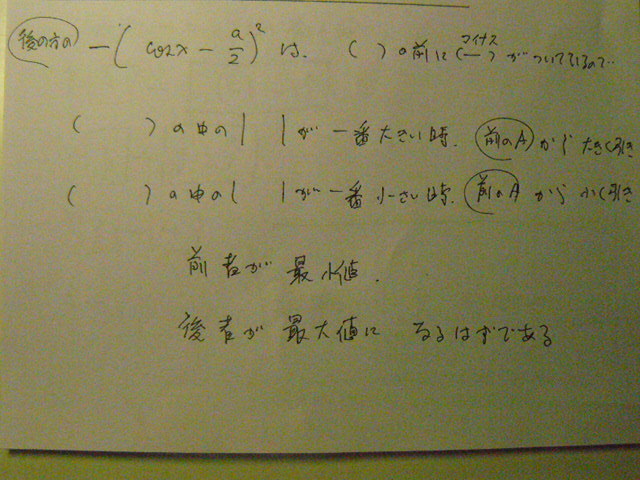 後の方の -( cos x - a/2 )² は、( )の前に(マイナス -)がついているので…
( )の中の| |が一番大きい時、前のAから大きく引き
( )の中の| |が一番小さい時、前のAから小さく引き
前者が最小値、
後者が最大値になるはずである